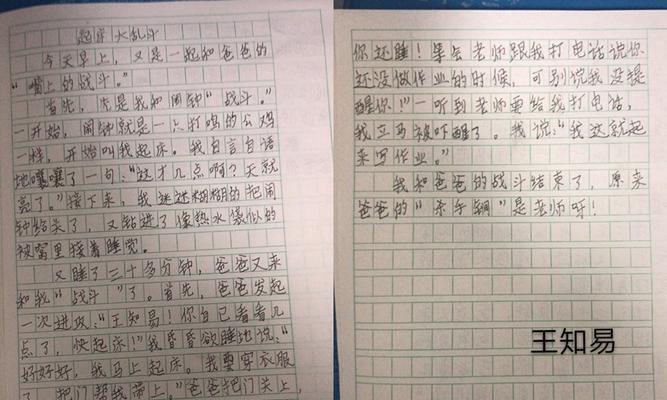 起床大乱斗
今天早上，又是一起和爸爸的
“嘴上的战斗。”
首先，先是我和闹钟“战斗。”
一开始，闹钟就是一只打鸣的公鸡
一样，开始叫我起床。我自言自语
地嚷嚷了一句：“这才几点啊？天就
亮了。”接下来，我迷迷糊糊的把闹
钟给关了，又钻进了像热水袋似的
被窝里接着睡觉。
又睡了三十多分钟，爸爸又来
和我“战斗”了。首先，爸爸发起
一次进攻：“王知易！你自己看看几
点了，快起床！”我昏昏欲睡地说：“
好好好，我马上起床。我要穿衣服
了，把门帮我带上。”爸爸把门关上，
你还睡！等会老师跟我打电话说你
还没做作业的时候，可别说我没提
醒你！”一听到老师要给我打电话，
我立马被吓醒了。我说：“我这就起
来写作业。”
我和爸爸的战斗结束了，原来
爸爸的“杀手锏”是老师呀！
王知易